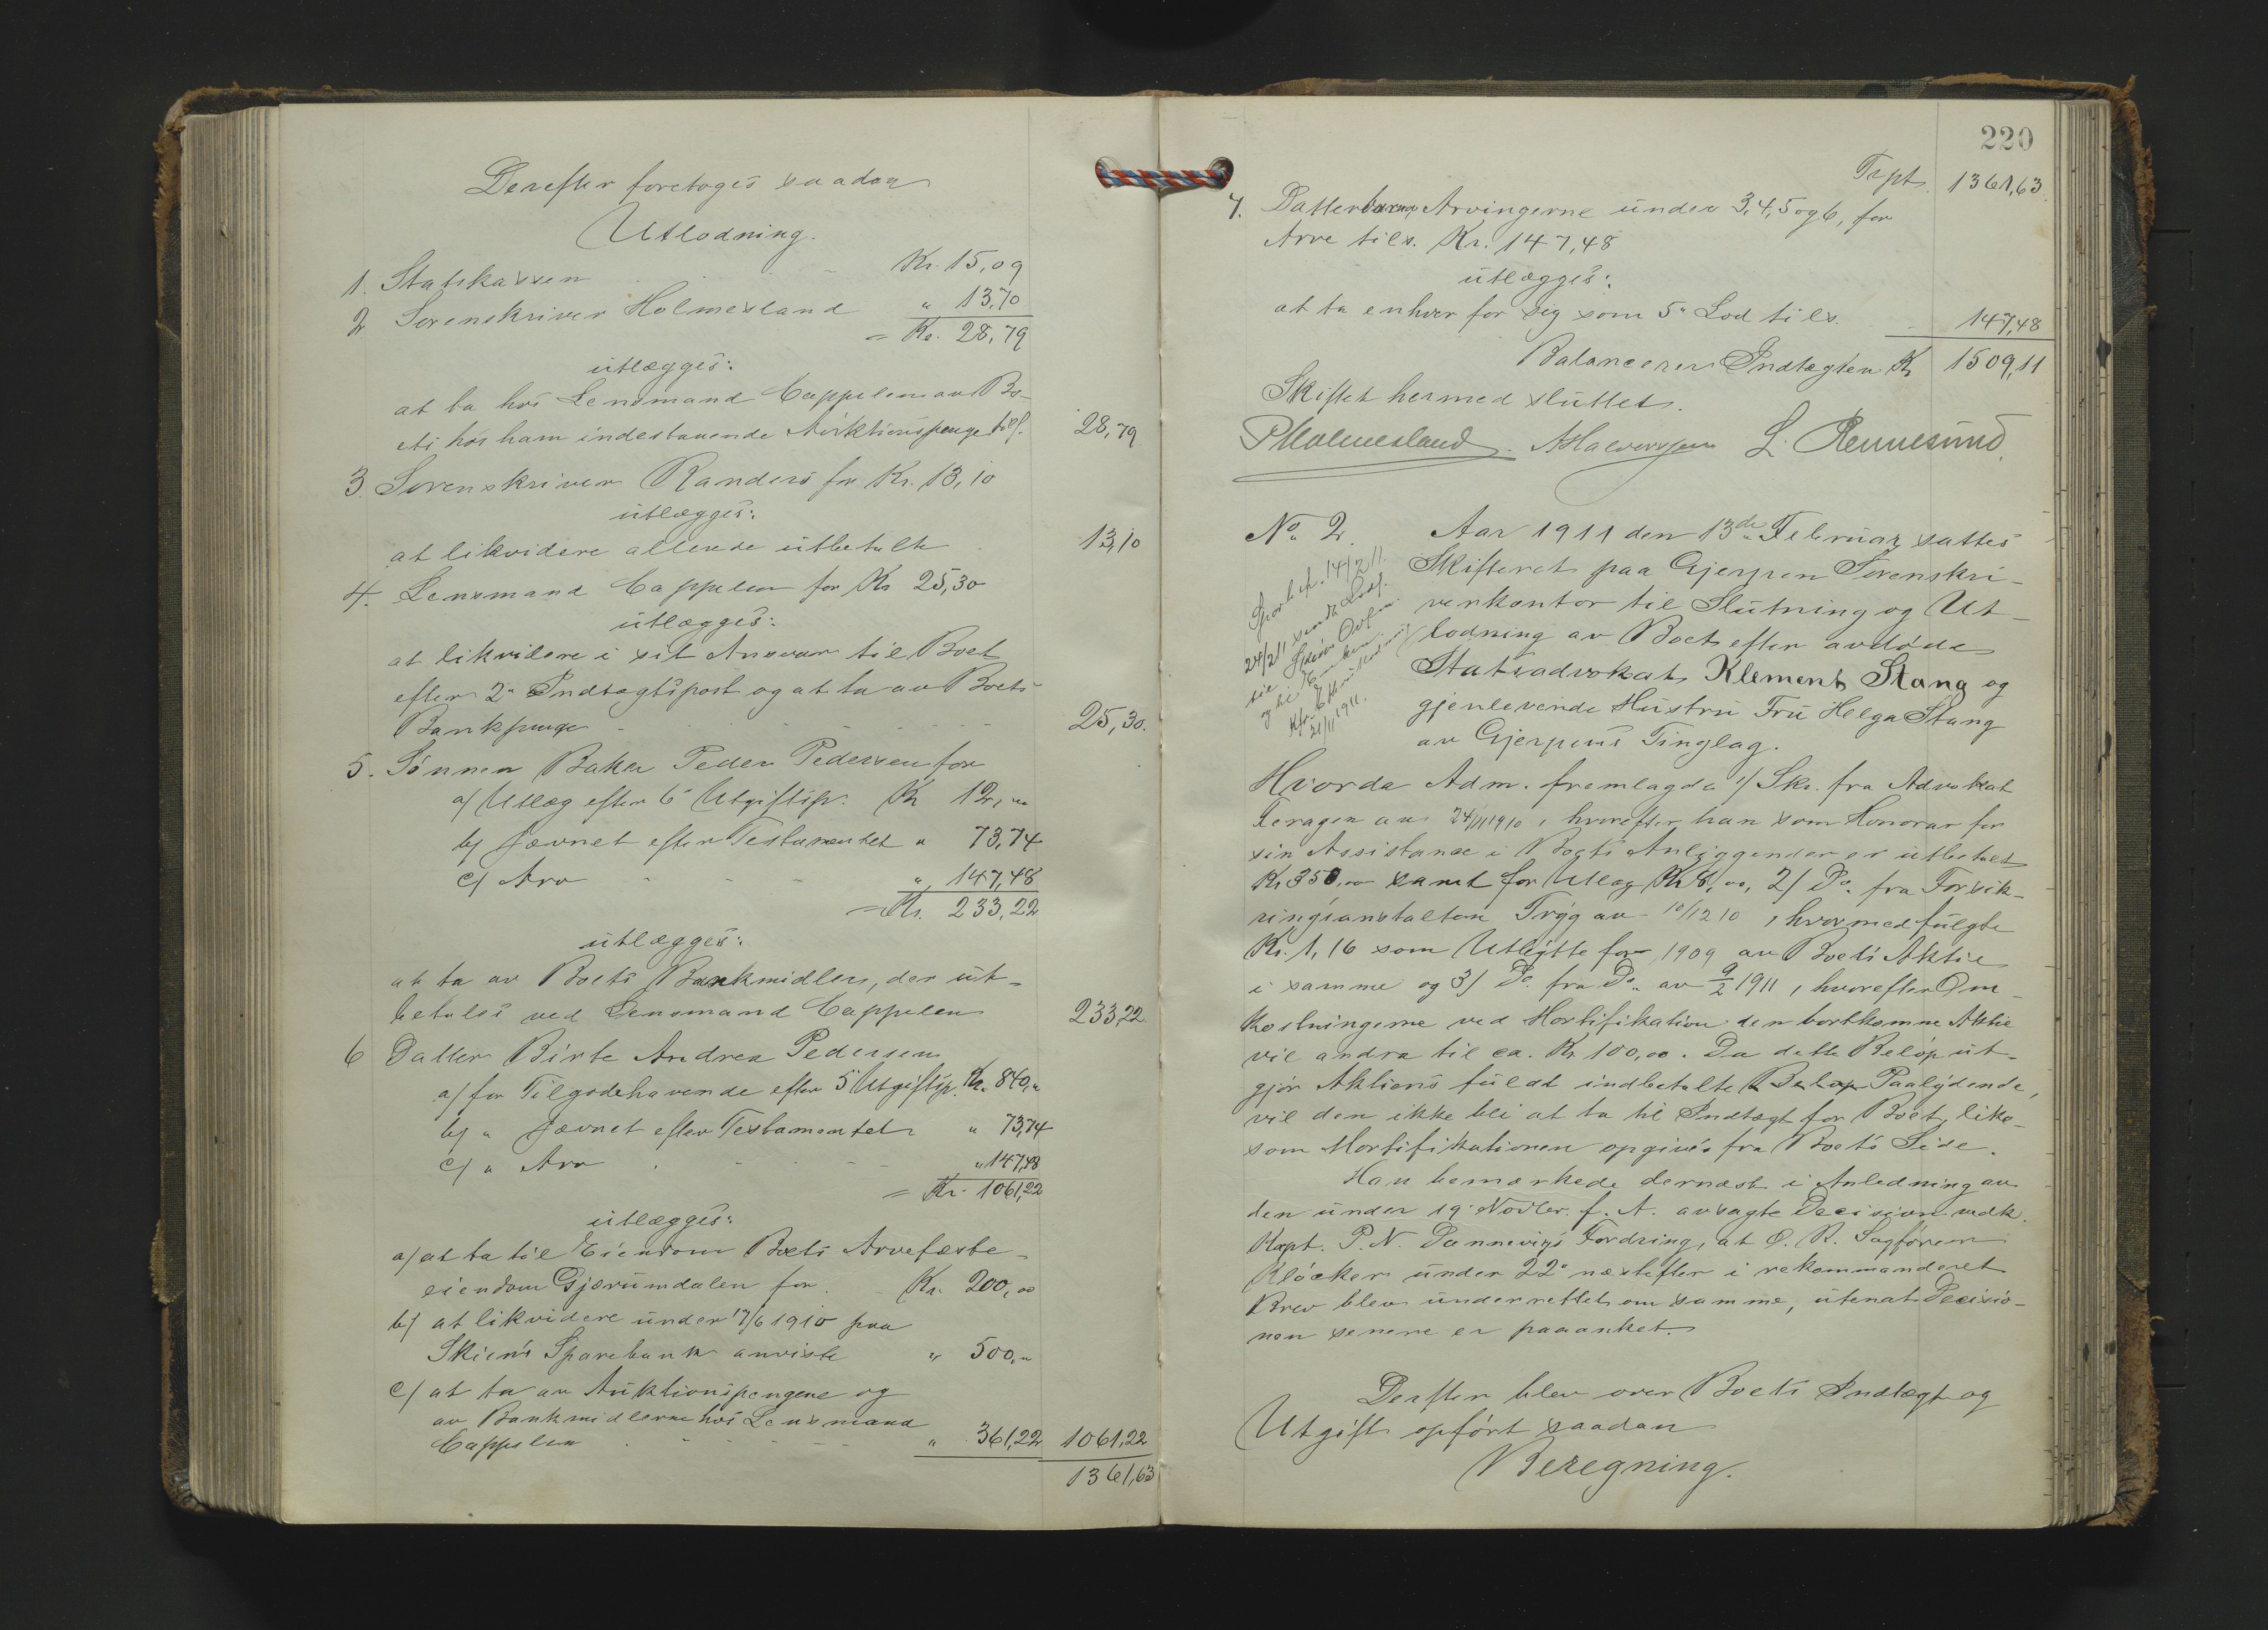 Derefter foretoges saadan
Utlodning.
1. Statskassen Kr. 15,09
2 Sorenskriver Holmesland " 13,70
= Kr. 28,79
utlægges:
at ta hos Lensmand Cappelen av Bo-
ets hos ham indestaaende Auktionspenge 28,79
3. Sorenskriver Randers for Kr. 13,10
utlægges:
at likvidere allerede utbetalt 13,10
4. Lensmand Cappelen for Kr 25,30
utlægges:
at likvidere i sit Ansvar til Boet
efter 2" Indtægtspost og at ta av Boets
Bankpenge 25,30.
5. Sønnen Baker Peder Pedersen for
a/ Utlæg efter 6" Utgiftsp. Kr 12,"
b/ Jævnet efter Testamentet " 73,74
c/ Arv " 147,48
= Kr. 233,22
utlægges:
at ta av Boets Bankmidler, der ut-
betales ved Lensmand Cappelen 233,22
6 Datter Birte Andrea Pedersen
a/ for Tilgodehavende efter 5" Utgiftsp. Kr. 840,"
b/ " Jævnet efter Testamentet " 73,74
c/ " Arv " 147,48
= Kr. 1061,22
utlægges:
a/ at ta til Eiendom Boets Arvefæste-
eiendom Gjerumdalen for Kr. 200,00
b/ at likvidere under 17/6 1910 paa
Skiens Sparebank anviste " 500,"
c/ at ta av Auktionspengene og
av Bankmidlerne hos Lensmand
Cappelen " 361,22 1061,22
1361,63
220
Trpt. 1361,63
7. Datterbarn, Arvingerne under 3,4,5 og 6, for
Arv tils. Kr. 147,48
utlægges:
at ta enhver for sig som 5" Lod tils. 147,48
Balancerer Indtægten Kr 1509,11
Skiftet hermed sluttet.
P Holmesland. A Halvorsen L. Rennesund.
No 2. Aar 1911 den 13de Februar sattes
Skifteret paa Gjerpen Sorenskri-
verkontor til Slutning og Ut-
lodning av Boet efter avdøde
Statsadvokat Klement Stang og
gjenlevende Hustru Fru Helga Stang
av Gjerpens Tinglag.
14/2 11.
24/2 11 sendt
til
og til Enken
21/11 1911.
Hvorda Adm. fremlagde 1/ Skr. fra Advokat
Feragen av 24/11 1910, hvorefter han som Honorar for
sin Assistance i Boets Anliggender er utbetalt
Kr 350,00 samt for Utlæg Kr 8,00, 2/ Do. fra Forsik-
ringsanstalten Tryg av 10/12 10, hvormed fulgte
Kr. 1,16 som Utbytte for 1909 av Boets Aktie
i samme og 3/ Do. fra Do. av 9/2 1911, hvorefter Om-
kostningerne ved Mortifikation den bortkomne Aktie
vil andra til ca. Kr. 100,00. Da dette Beløp ut-
gjør Aktiens fuldt indbetalte Beløp Paalydende,
vil den ikke bli at ta til Indtægt for Boet, like-
som Mortifikationen opgives fra Boets Side.
Han bemærkede dernæst i Anledning av
den under 19. Novbr. f. A. avsagte Decision vedk.
Kapt. P. N. Dannevigs Fordring, at O. R. Sagfører
Kløcker under 22" næstefter i rekommanderet
Brev blev underrettet om samme, uten at Decisio-
nen senere er paaanket.
Derefter blev over Boets Indtægt og
Utgift opført saadan
Beregning.